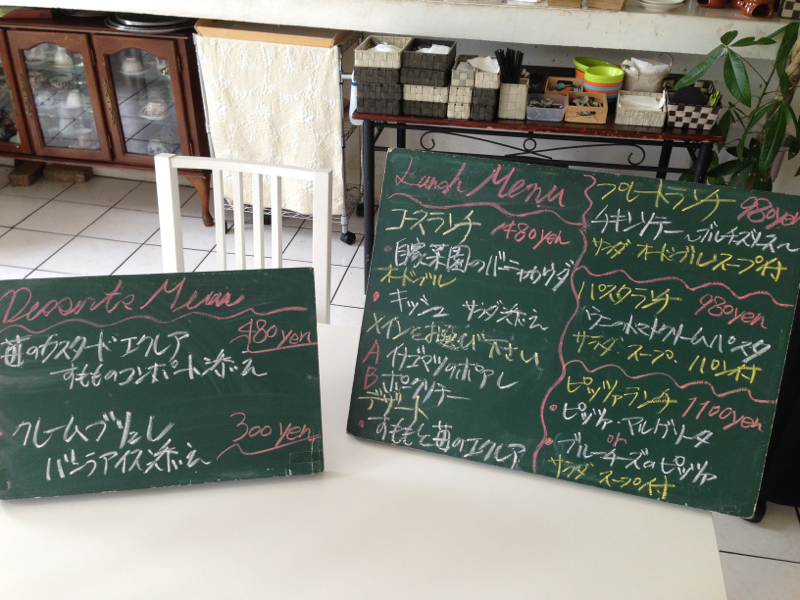 Desserts Menu
480yen
苺のカスタードエクレア
すもものコンポート添え
300yen
クレームブリュレ
バニラアイス添え
Lunch Menu
コースランチ 1480yen
自家菜園のバーニャカウダ
オードブル
キッシュ サラダ添え
メインをお選び下さい
A イナゴマツのポアレ
B ポークソテー
デザート
すももと苺のエクレア
プレートランチ 980yen
チキンソテー
サラダ オードブル スープ付
パスタランチ 980yen
トマトクリームパスタ
サラダ スープ パン付
ピッツァランチ 1100yen
ピッツァ・マルゲリータ
or
ブルーチーズのピッツァ
サラダ スープ付